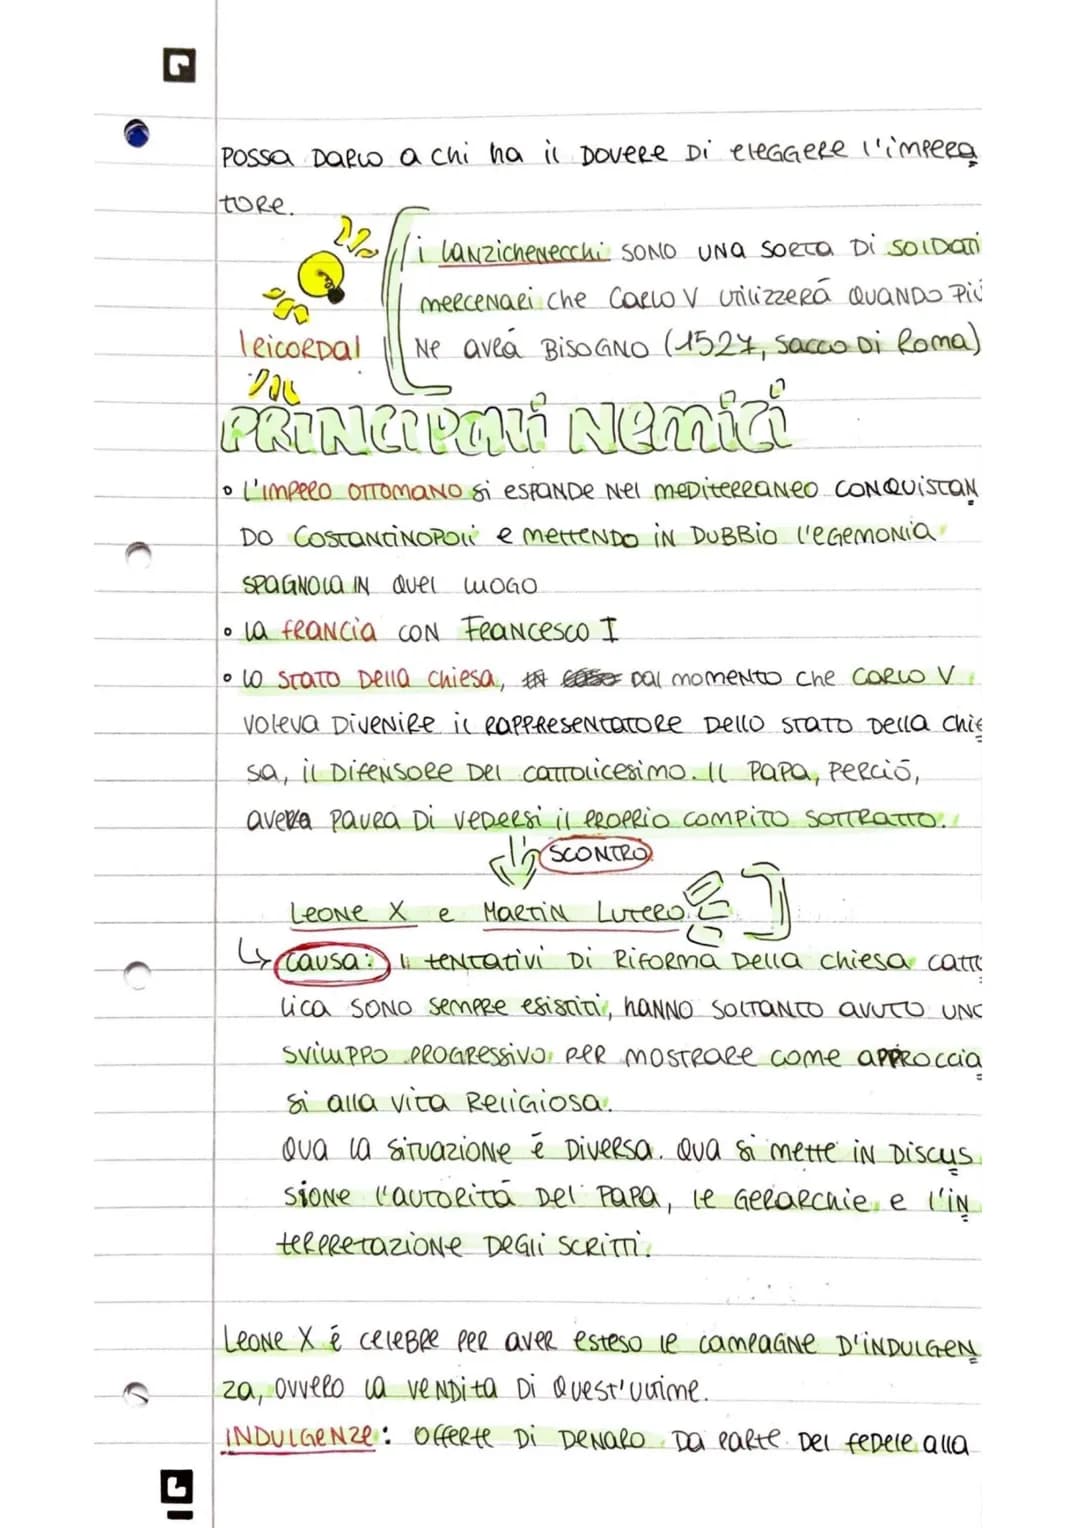 POSSA DARLO a chi ha il DOVERE Di eleGGERE l'impera
tore.
i lanzichenecchi SONO UNA SORTA Di SOlDati
mercenari che Carlo V utilizzerá QUANDO Più
Ne avrá BISOGNO (1527, sacco Di Roma)
!ricorda!
PRINCIPALI Nemici
• l'impero ottomano si espande nel mediterraneo conquistan
do Costantinopoli e mettendo in dubbio l'egemonia
spagnola in quel luogo
• la francia con Francesco I
• lo Stato Della Chiesa, dal momento che Carlo V
voleva divenire il rappresentatore dello stato della chie
sa, il difensore del cattolicesimo. Il Papa, perció,
aveva paura di vedersi il proprio compito sottratto.
SCONTRO
Leone X e Martin Lutero
↳ causa: I tentativi di Riforma della chiesa catto
lica sono sempre esistiti, hanno soltanto avuto uno
sviluppo progressivo per mostrare come approccia
si alla vita religiosa.
Qua la situazione é diversa. Qua si mette in discus
sione l'autoritá del Papa, le gerarchie e l'in
terpretazione degli scritti.
Leone X é celebre per aver esteso le campagne d'indulgen
za, ovvero la vendita di quest'ultime.
INDULGENZE: offerte di denaro da parte del fedele alla